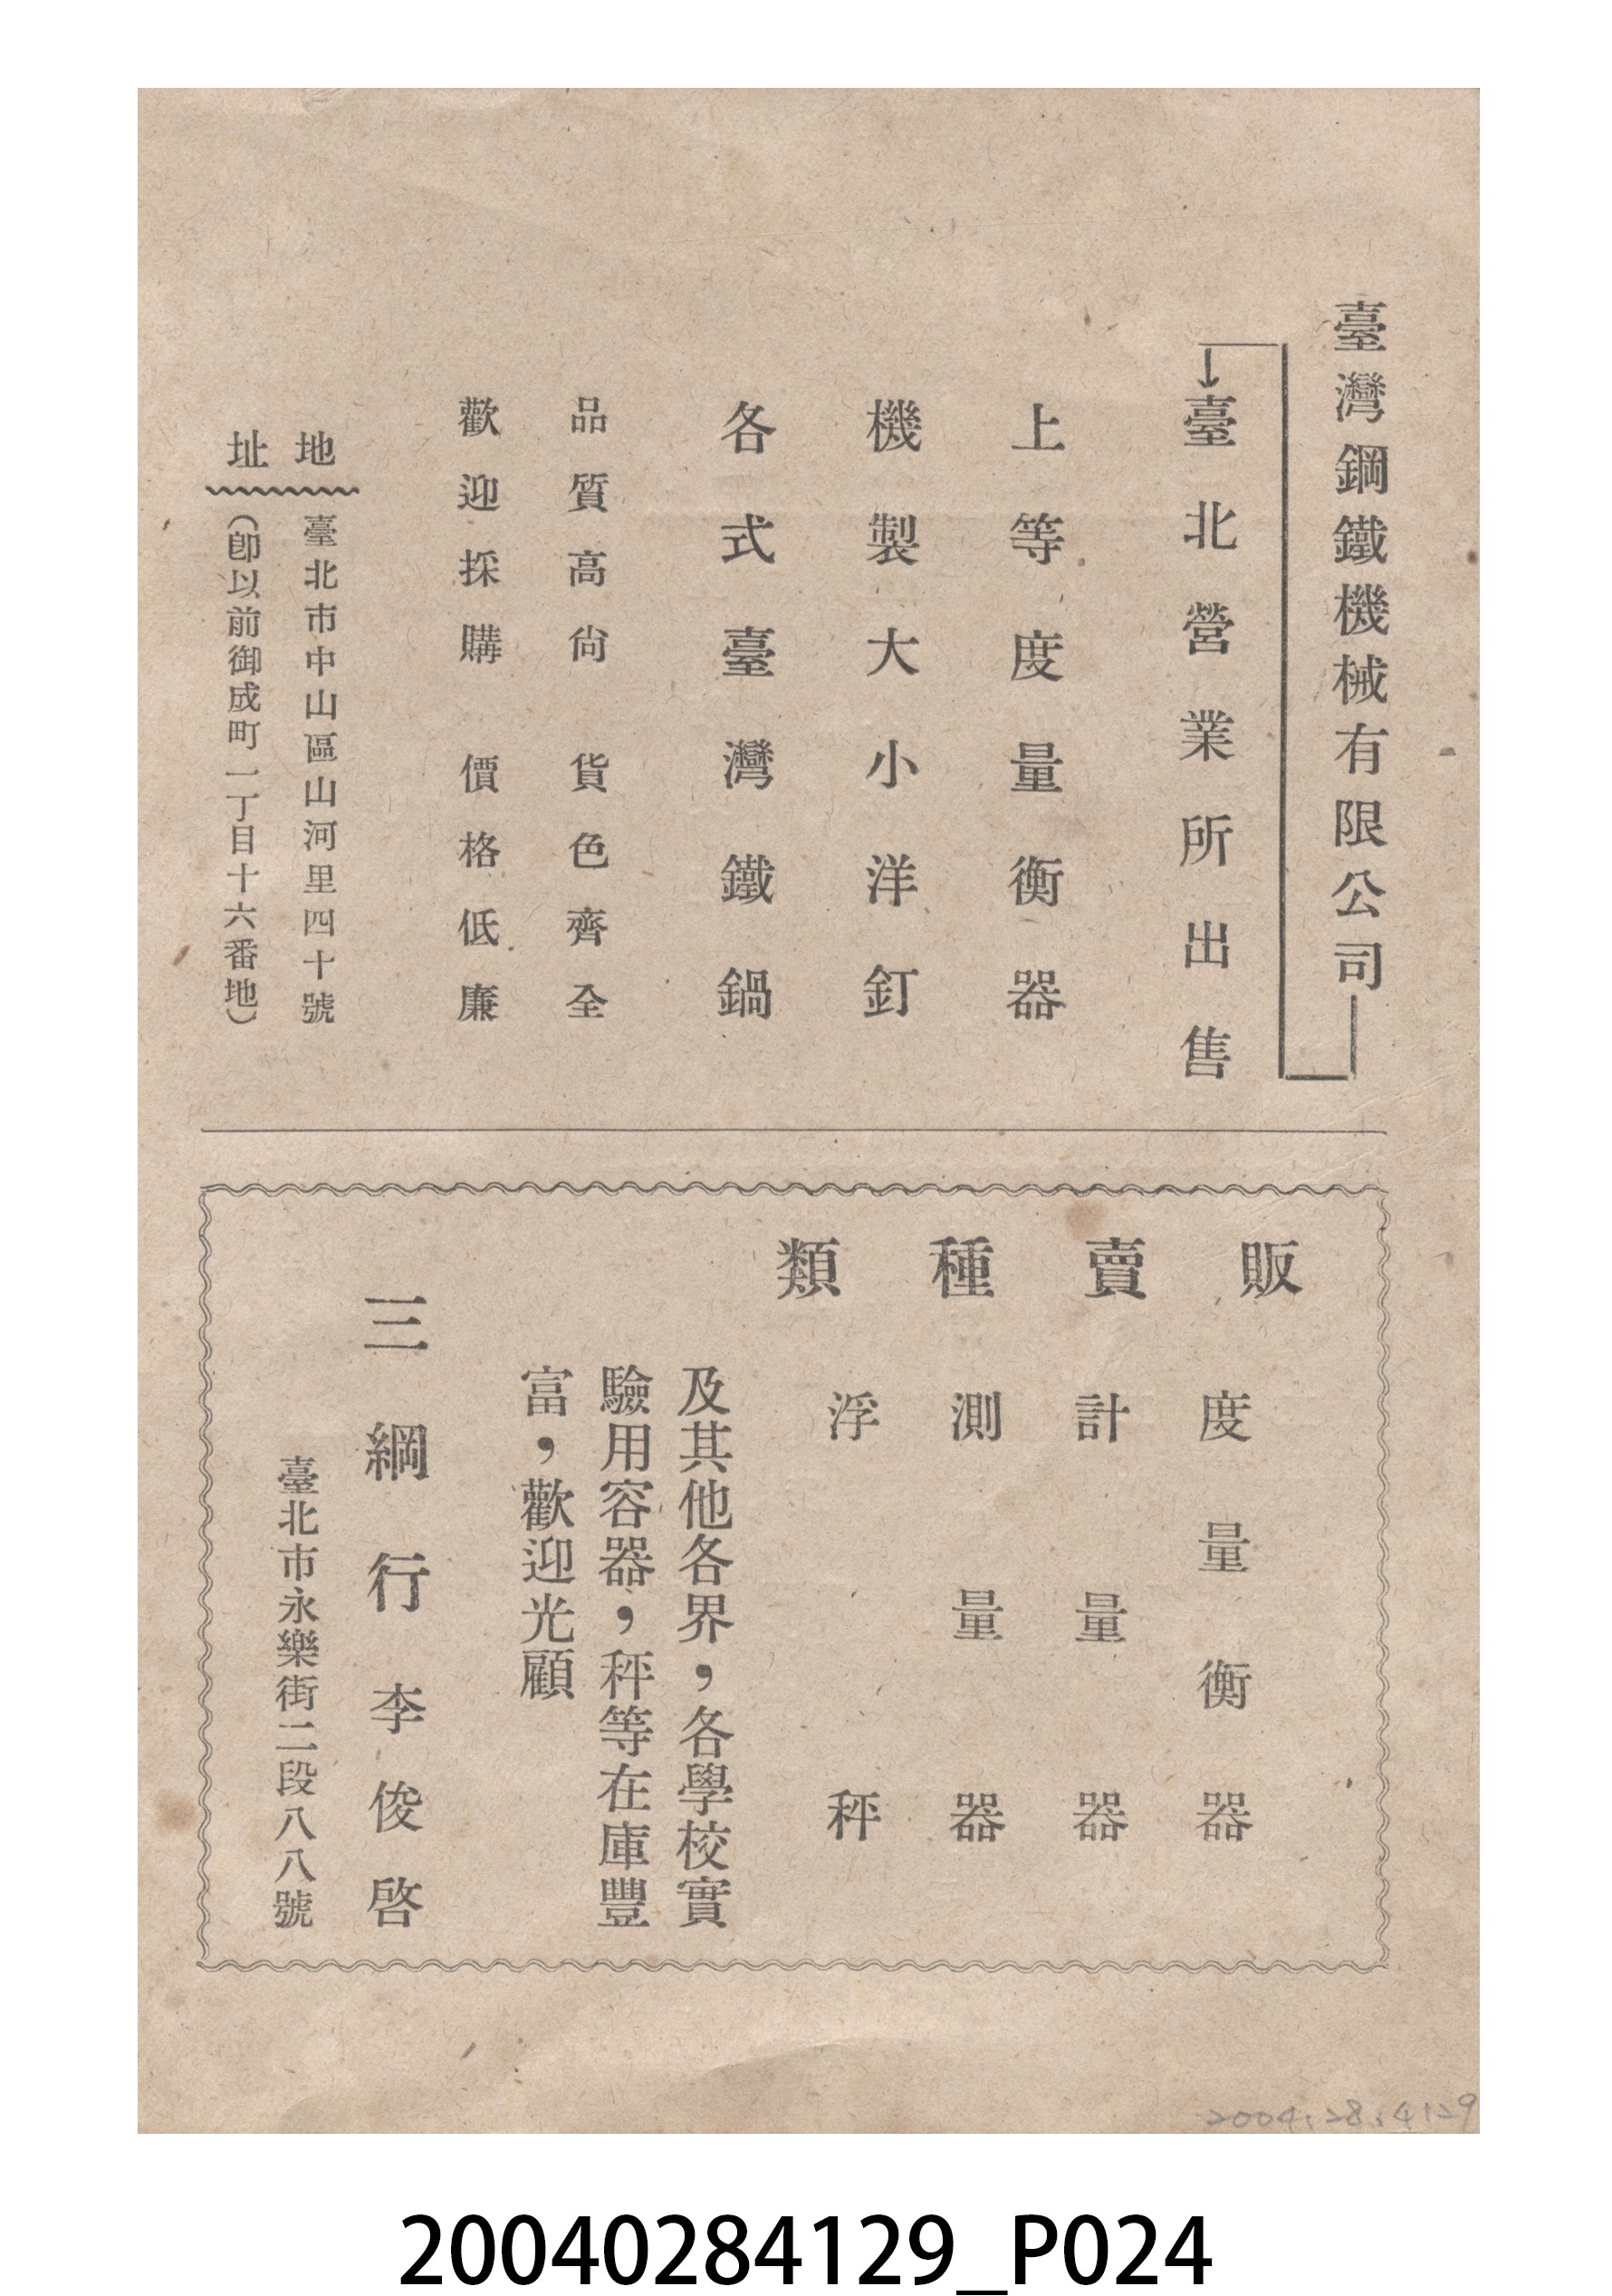 臺灣鋼鐵機械有限公司
臺北營業所出售
上等度量衡器
機製大小洋釘
各式臺灣鐵鍋
品質高尙　貨色齊全
歡迎採購　價格低廉
地址
臺北市中山區山河里四十號
（卽以前御成町一丁目十六番地）
販賣種類
度量衡器
計量器
測量器
浮秤
及其他各界，各學校實
驗用容器，秤等在庫豐
富，歡迎光顧
三綱行李俊啓
臺北市永樂街二段八八號
2004.28.4129
20040284129_P024